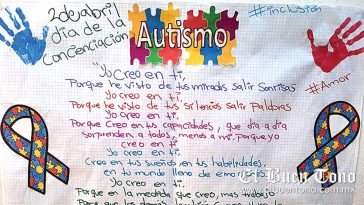 2 de abril
día de la
Concienciación
Autismo
#inclusión
#Amor
"Yo Creo en ti,
Porque he visto de tus miradas salir Sonrisas
Yo creo en ti,
Porque he visto de tus silencios salir Palabras
Yo creo en ti,
Porque Creo en tus capacidades, que día a día
Sorprenden a todos, menos a mi. Porque yo
creo en ti
Yo creo en ti,
Creo en tus sueños en tus habilidades,
en tu mundo lleno de emociones
Yo creo en ti,
Porque en la medida que creo, mas trabajo
El Buen Tono
www.elbuentono.com.mx